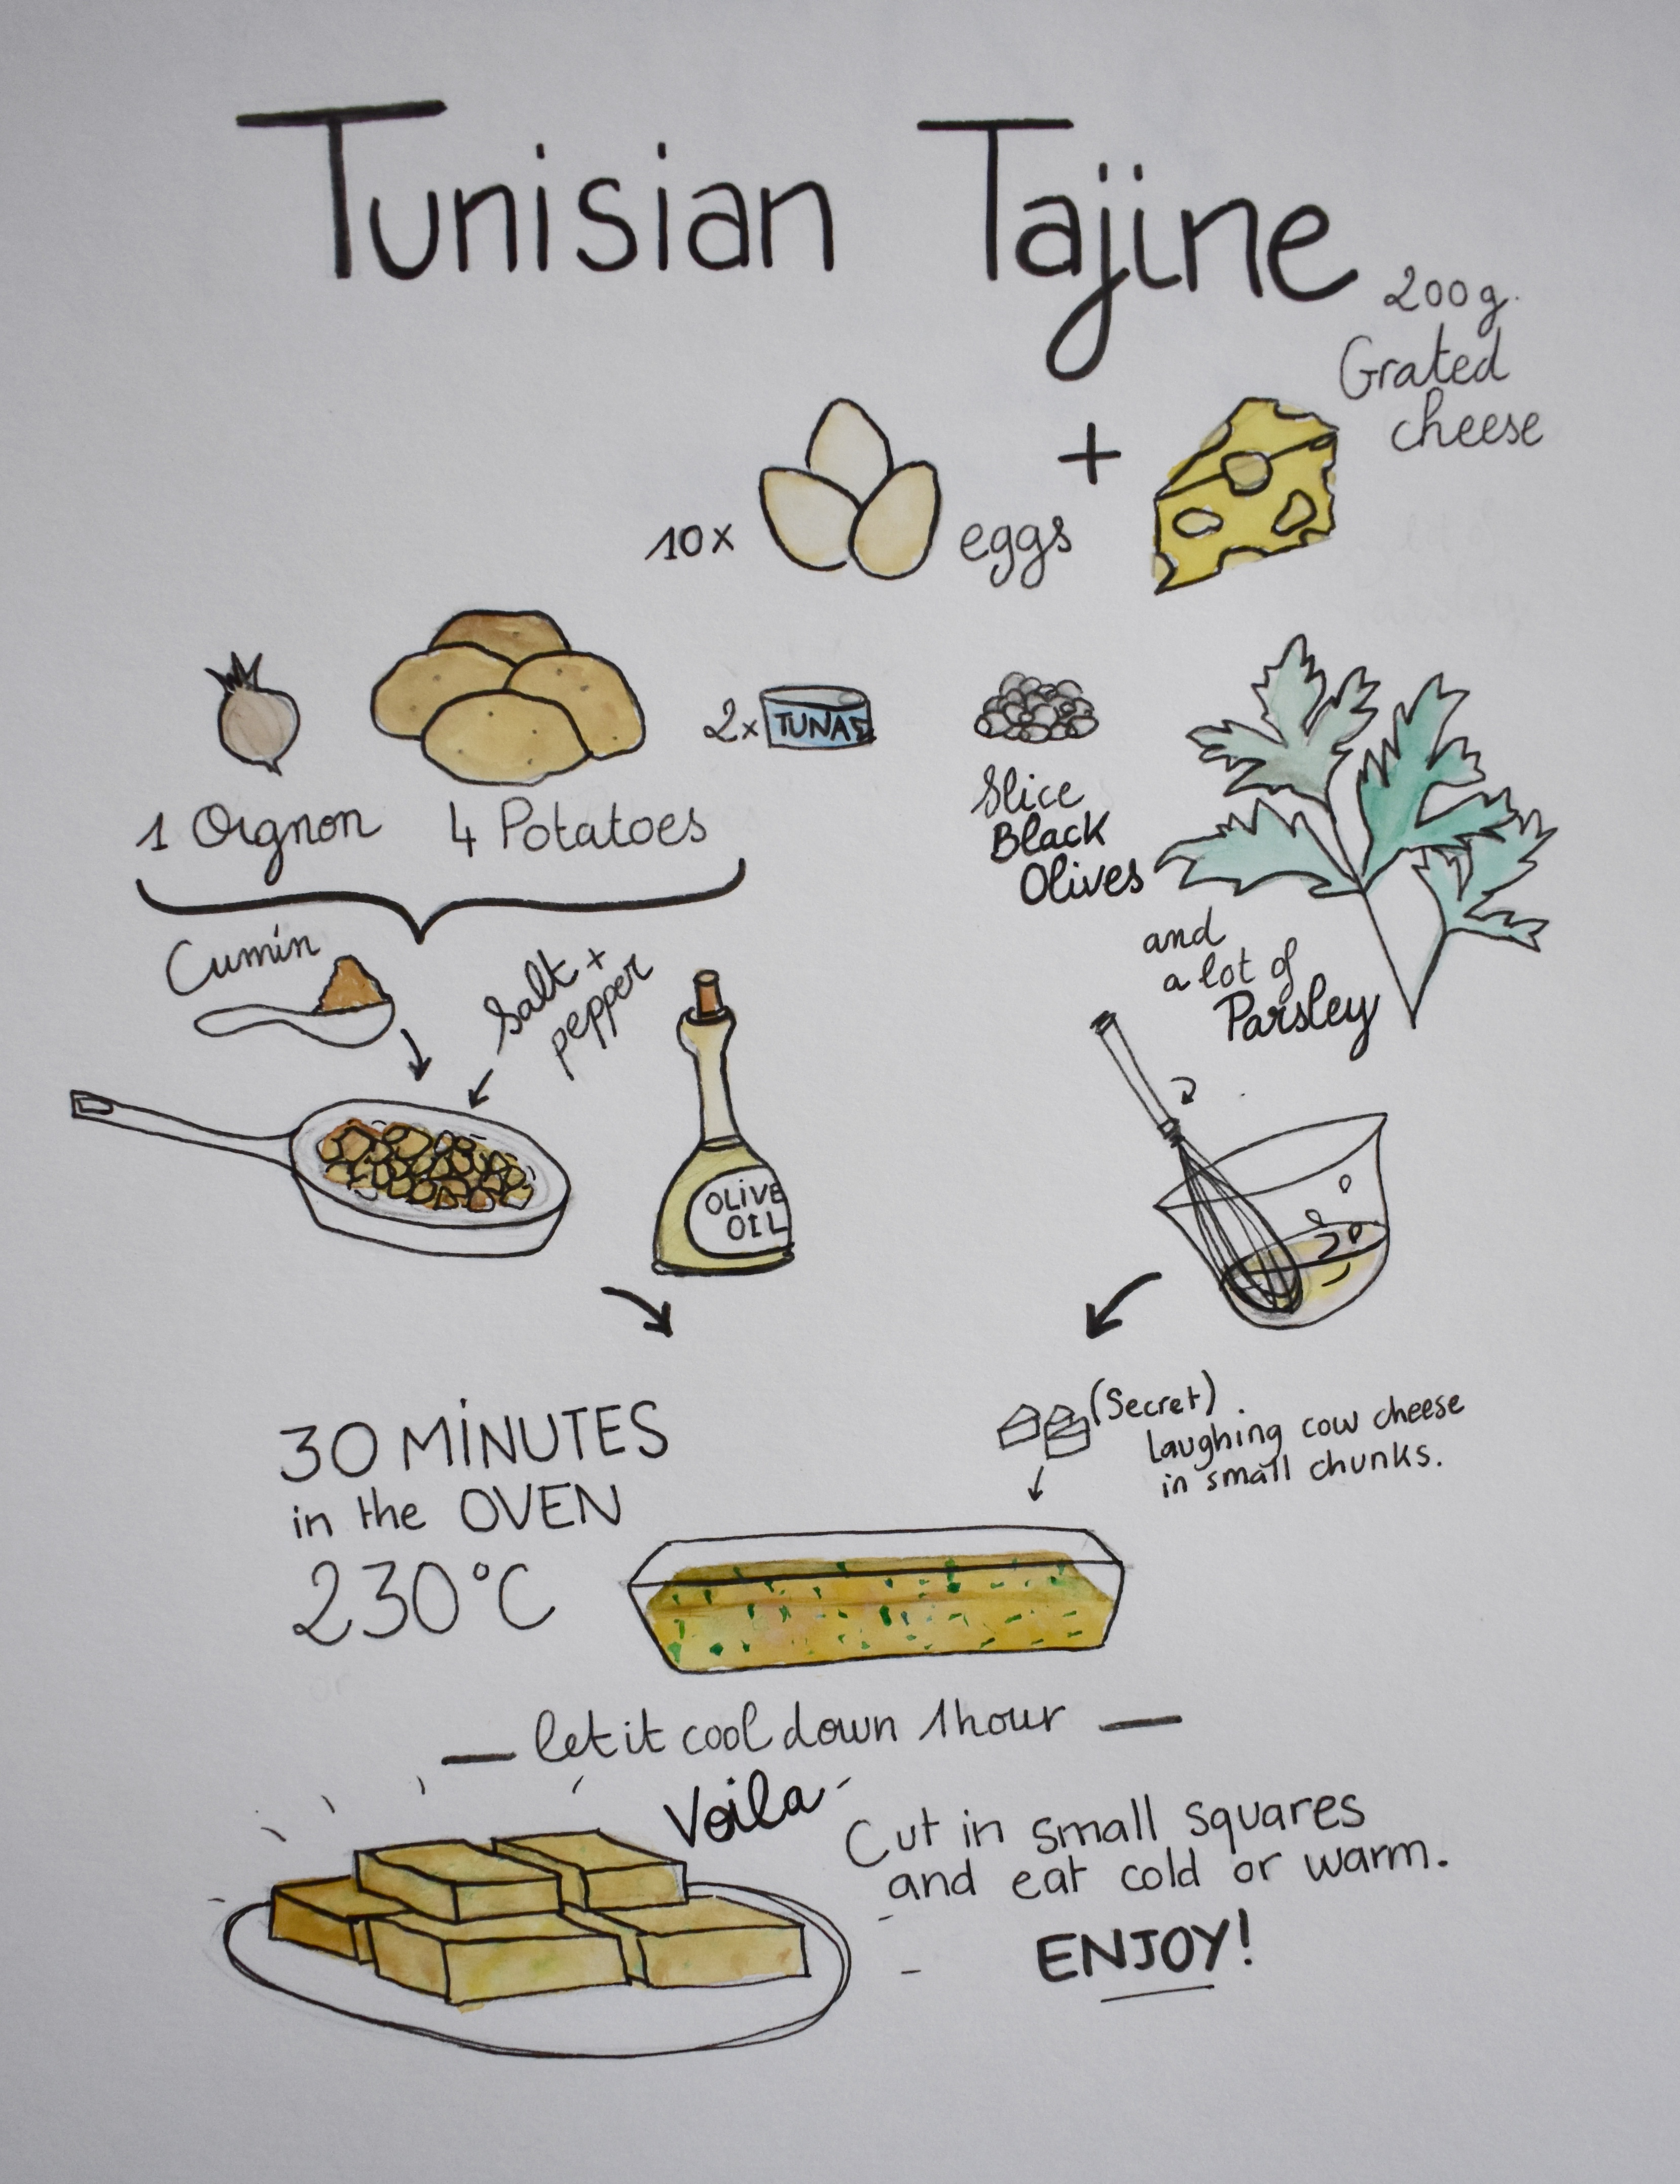 Tunisian Tajine
200g.
Grated
cheese
10x eggs +
2x TUNA
1 Oignon 4 Potatoes
Slice
Black
Olives
and
a lot of
Parsley
Cumin
Salt +
pepper
OLIVE
OIL
30 MINUTES
in the OVEN
230°C
(Secret)
Laughing cow cheese
in small chunks.
— let it cool down 1hour —
Voila
Cut in small squares
and eat cold or warm.
ENJOY!